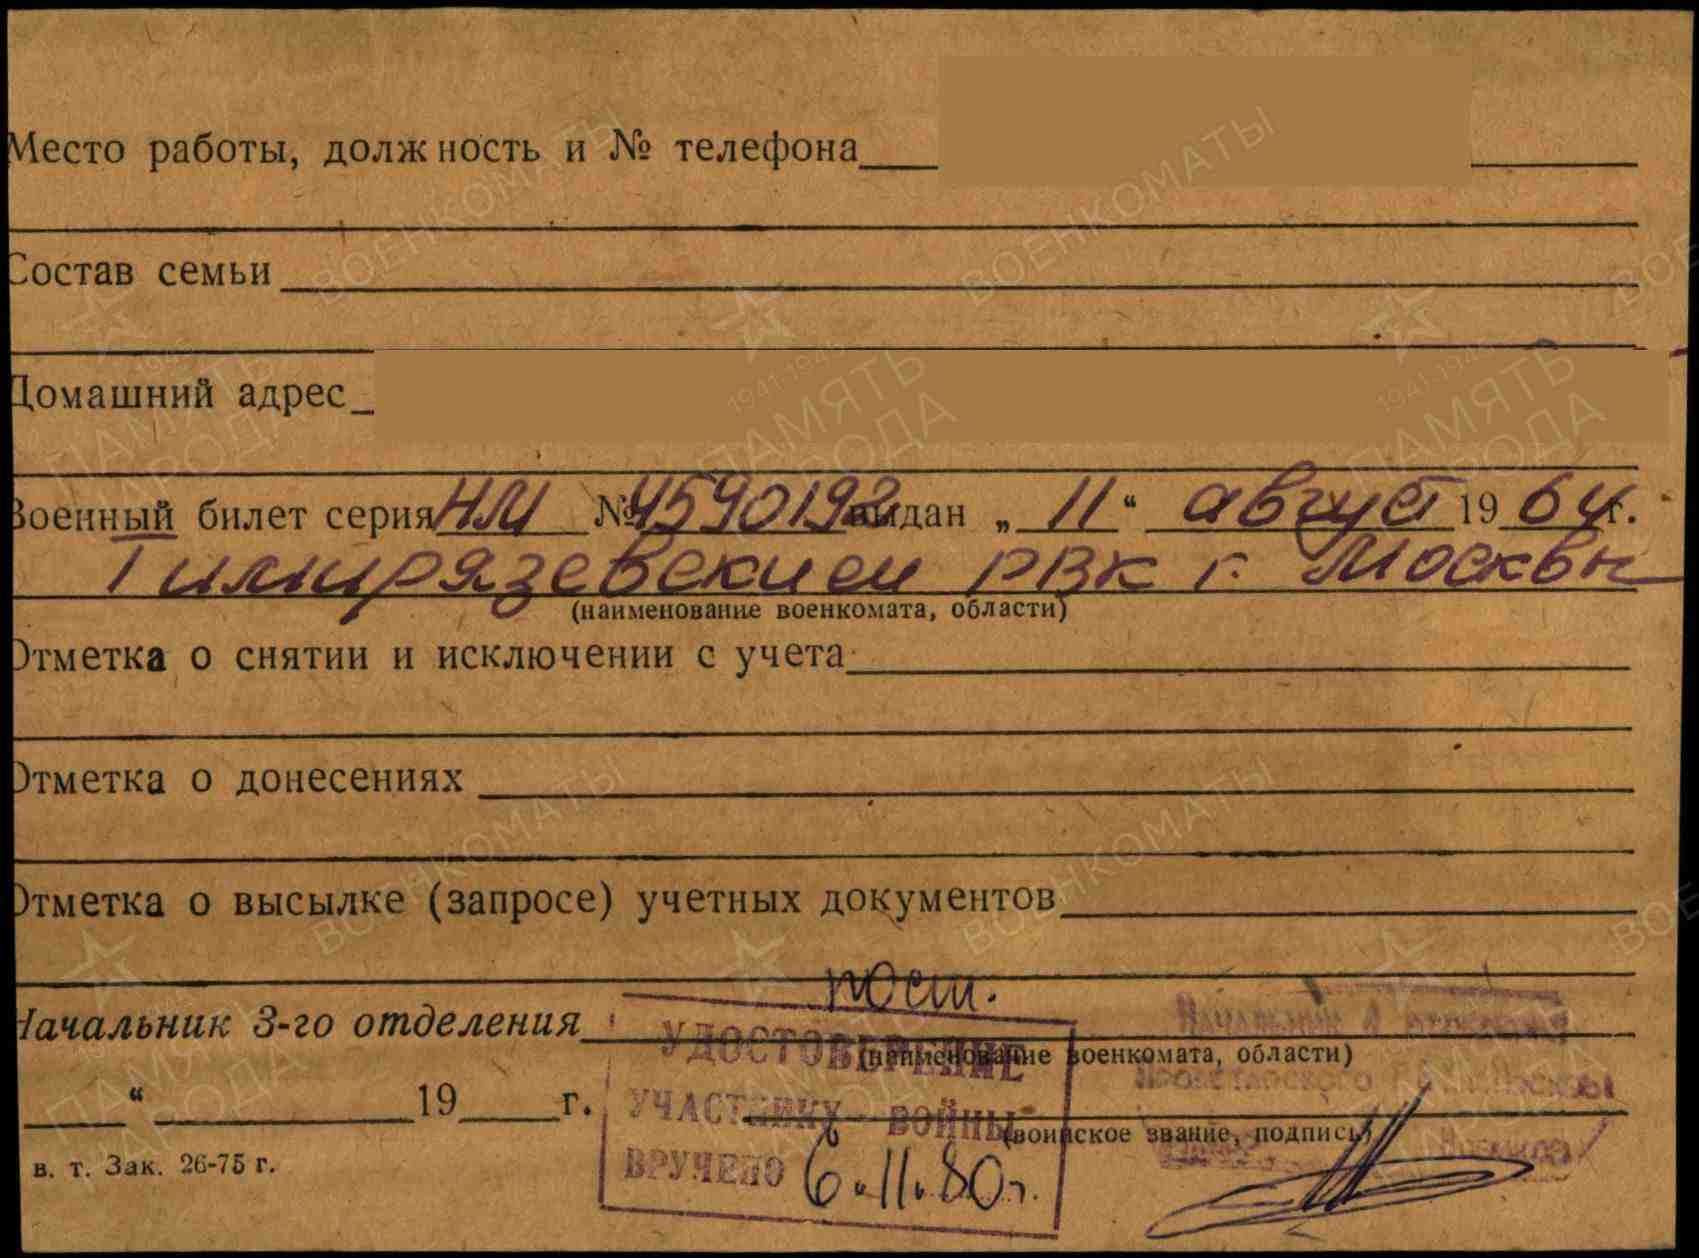 Место работы, должность и № телефона
Состав семьи
Домашний адрес
Военный билет серия НМ № 4590192 выдан „ 11 “ август 1964 г.
Тимирязевским РВК г. Москвы
(наименование военкомата, области)
Отметка о снятии и исключении с учета
Отметка о донесениях
Отметка о высылке (запросе) учетных документов
Начальник 3-го отделения
(наименование военкомата, области)
“ 19 г.
(воинское звание, подпись)
в. т. Зак. 26-75 г.
УДОСТОВЕРЕНИЕ
УЧАСТНИКУ ВОЙНЫ
ВРУЧЕНО 6.11.80г.
Начальник
Пролетарского
ВОЕНКОМАТЫ
1941-1945
ПАМЯТЬ
НАРОДА